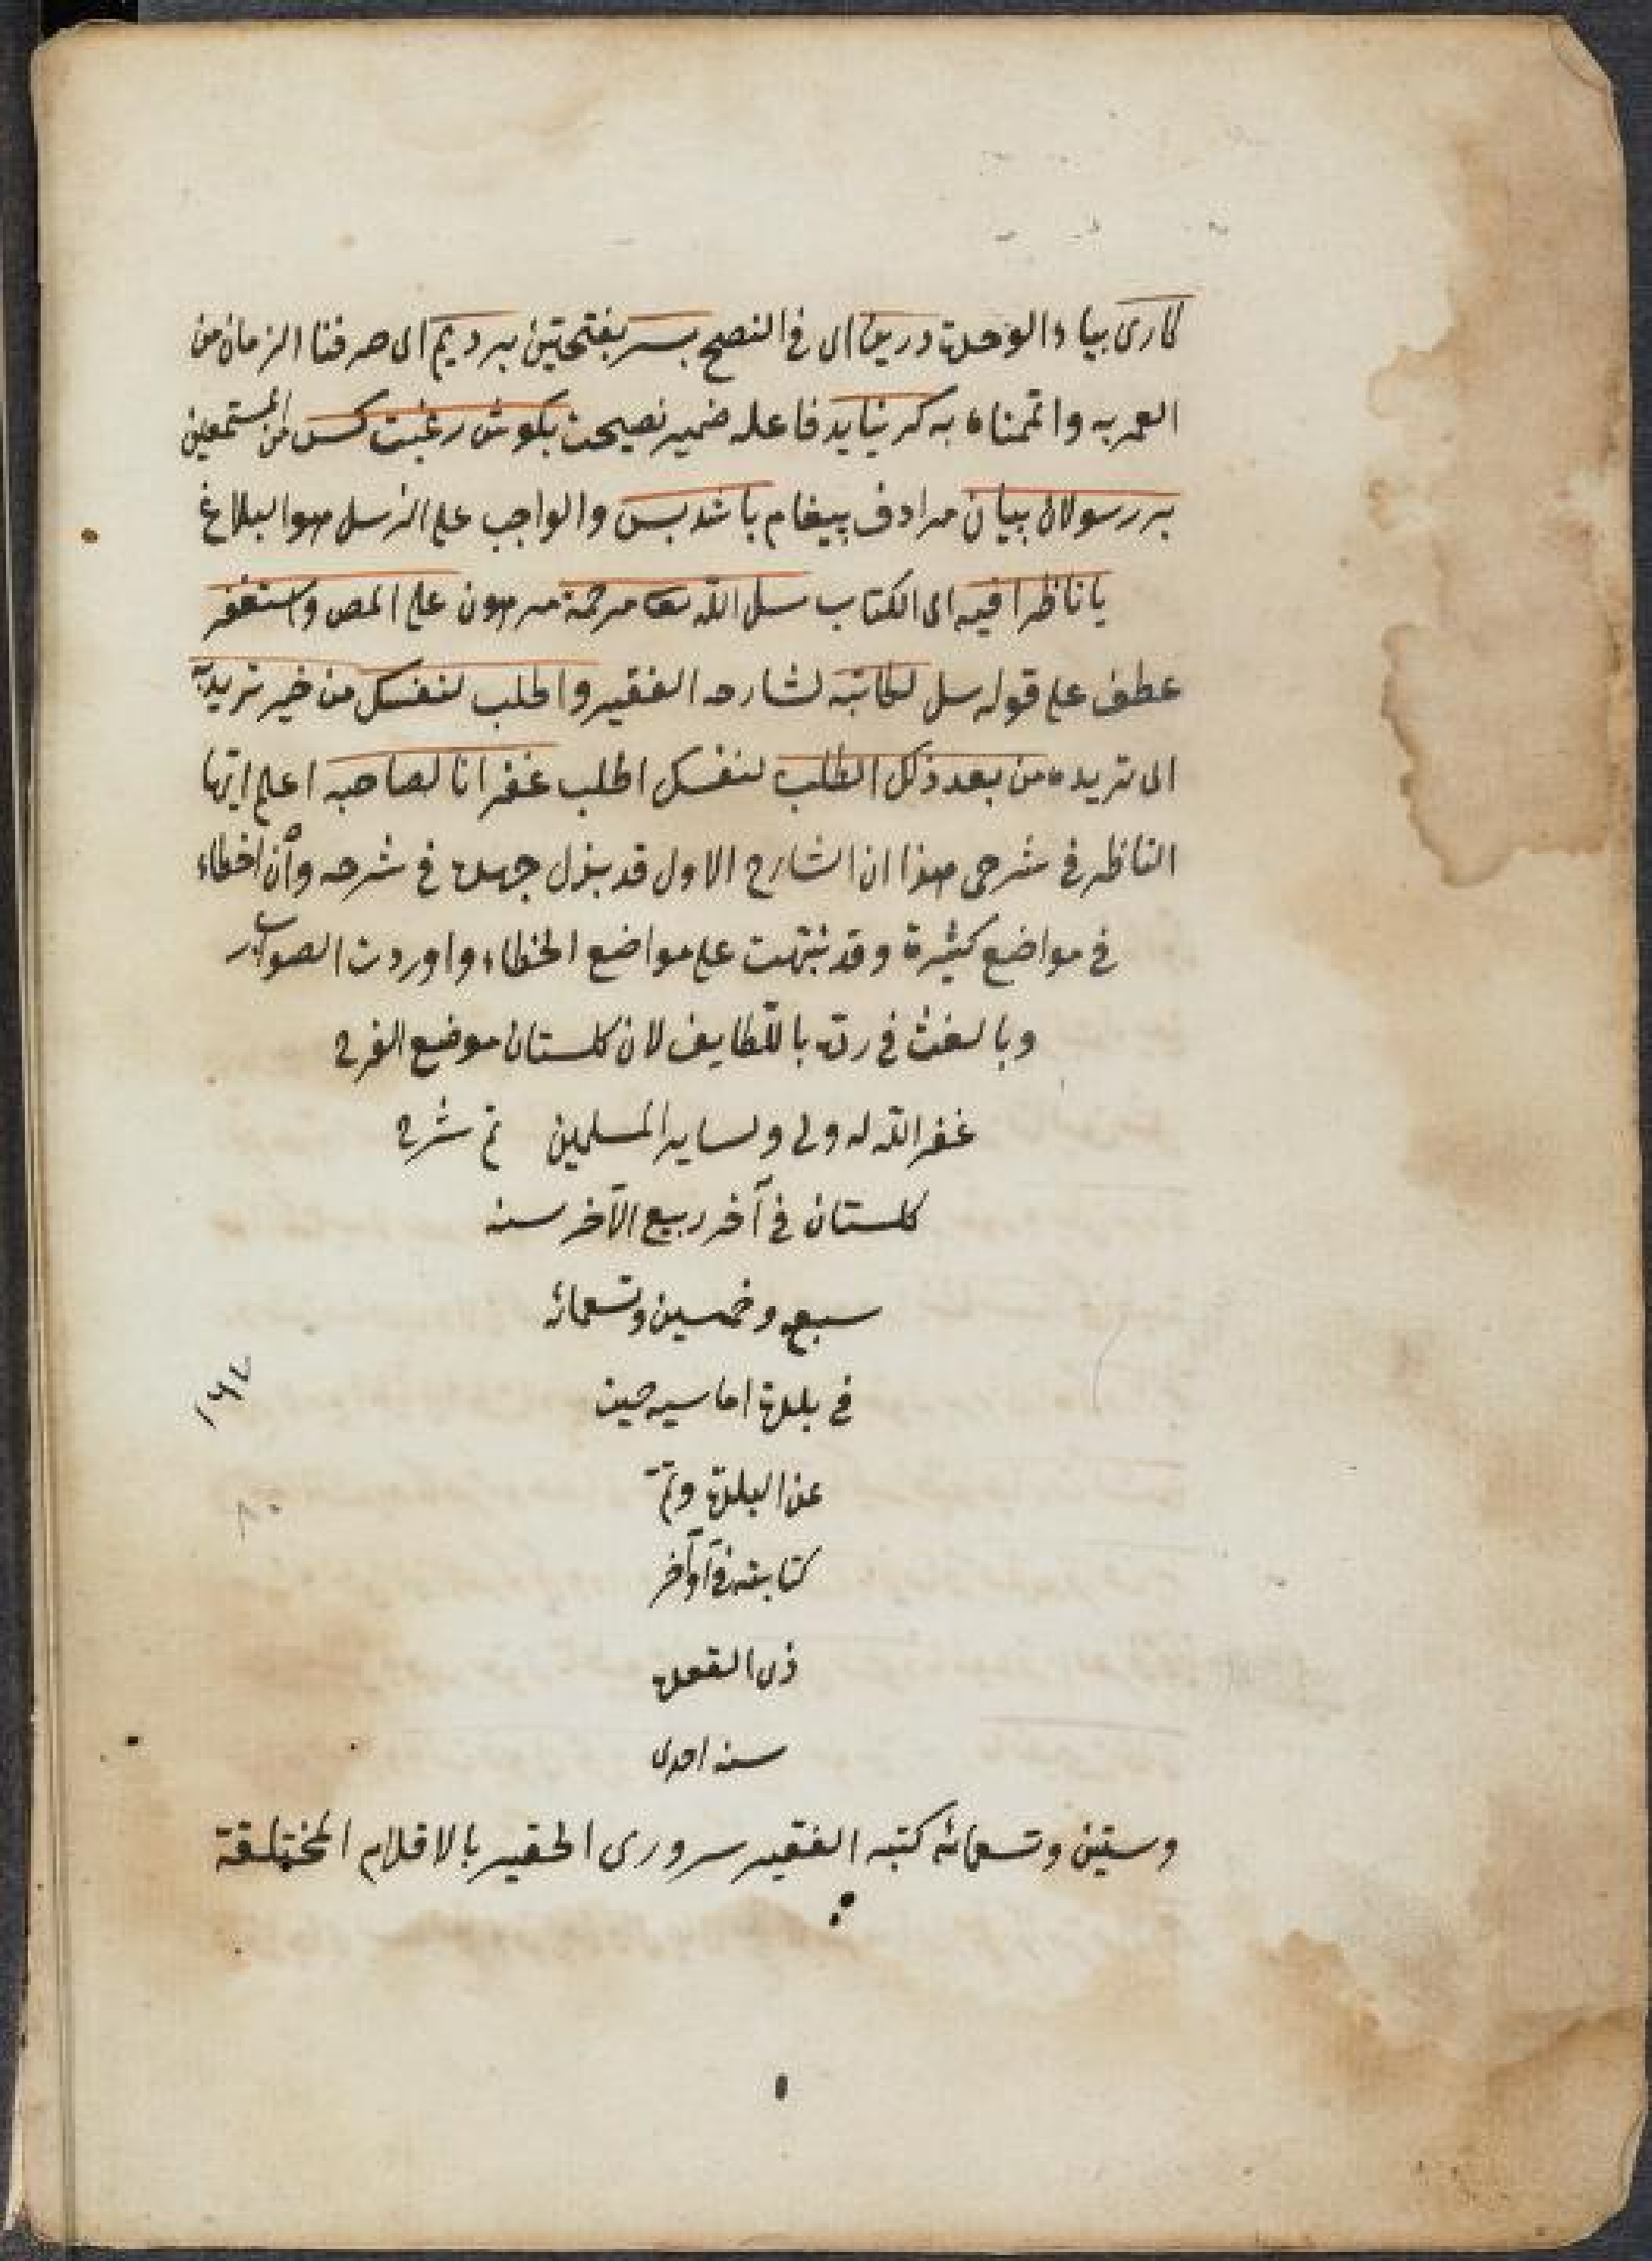 كارى بيا والوحدت درين اى فى النصح بسر بفتحتين برديم اى صرفنا الزمان من
العمر به واتممناه به كر نيايد فاعله ضمير نصيحت بكوش رغبت كس من المستمعين
بر رسولان بيان مرادف پيغام باشد بس والواجب على الرسل هو البلاغ
يا ناظرا فيه اى الكتاب سل الله تعا مرحمة مرهون على المص واستغفر
عطف على قوله سل لكاتبه لشارحه الفقير واطلب لنفسك من خير تريد به
اى تريده من بعد ذلك الطلب لنفسك اطلب غفرانا لصاحبه اعلم ايها
الناظر فى شرحى هذا ان الشارح الاول قد بذل جهده فى شرحه وأن اخطاء
فى مواضع كثيرة وقد نبّهت على مواضع الخطاء واوردت الصواب
وبالغت فى ردّه باللّطايف لان كلستان موضع الفرح
غفر الله له ولى ولساير المسلمين تم شرح
كلستان فى آخر ربيع الآخر سنه
سبع وخمسين وتسعمائه
فى بلدة اماسيه حين
عن البلدة وتمّ
كتابته فى آواخر
ذى القعدة
سنه احدى
وستين وتسعمائه كتبه الفقير سرورى الحقير بالاقلام المختلفة